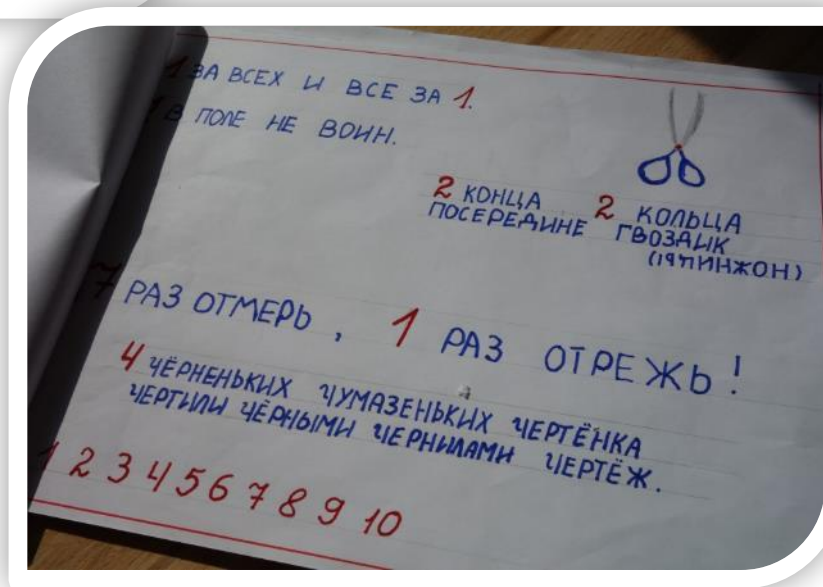 1 ЗА ВСЕХ И ВСЕ ЗА 1.
1 В ПОЛЕ НЕ ВОИН.
2 КОНЦА 2 КОЛЬЦА
ПОСЕРЕДИНЕ ГВОЗДИК
(ИЦЫНЖОН)
7 РАЗ ОТМЕРЬ, 1 РАЗ ОТРЕЖЬ!
4 ЧЁРНЕНЬКИХ ЧУМАЗЕНЬКИХ ЧЕРТЁНКА
ЧЕРТИЛИ ЧЁРНЫМИ ЧЕРНИЛАМИ ЧЕРТЁЖ.
1 2 3 4 5 6 7 8 9 10